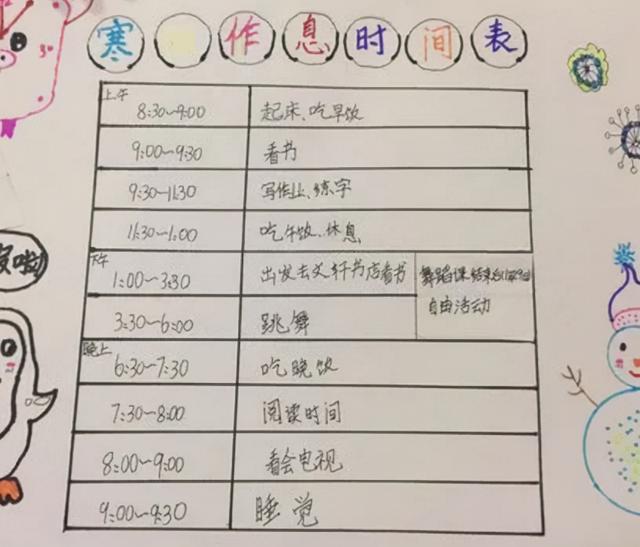 寒 作息时间表
上午
8:30~9:00 起床、吃早饭
9:00~9:30 看书
9:30~11:30 写作业、练字
11:30~1:00 吃午饭、休息
下午
1:00~3:30 出发去文轩书店看书 舞蹈课结束
3:30~6:00 跳舞 自由活动
晚上
6:30~7:30 吃晚饭
7:30~8:00 阅读时间
8:00~9:00 看会电视
9:00~9:30 睡觉